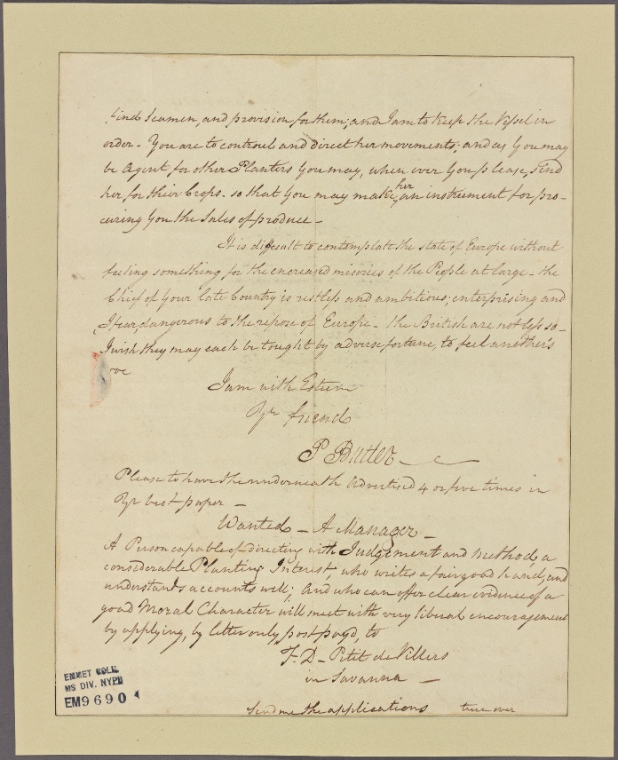 find Seamen, and provision for them; and I am to keep the Vessel in
order - You are to controul and direct her movements; and as You may
be Agent for other Planters You may, when ever You please, send
her for their Crops - so that You may make her an instrument for pro-
curing You the Sales of produce -
It is difficult to contemplate the state of Europe without
feeling something for the encreased miseries of the People at large - the
Chief of Your late Country is restless and ambitious; enterprising and
I fear, dangerous to the repose of Europe - the British are not less so -
I wish they may each be tought by adverse fortune, to feel another's
I am with Esteem
Yr friend
P Butler
Please to have the underneath Advertised 4 or five times in
Yr best paper -
Wanted - A Manager -
A Person capable of directing with Judgement and method, a
considerable Planting Interest, who writes a fair good hand, and
understands accounts well; And who can offer clear evidence of a
good Moral Character will meet with very liberal encouragement
by applying, by letter only, post payd, to
F. D - Petit de Villers
in Savanna -
Send me the applications turn over
EMMET COLL.
MS DIV. NYPL
EM9690